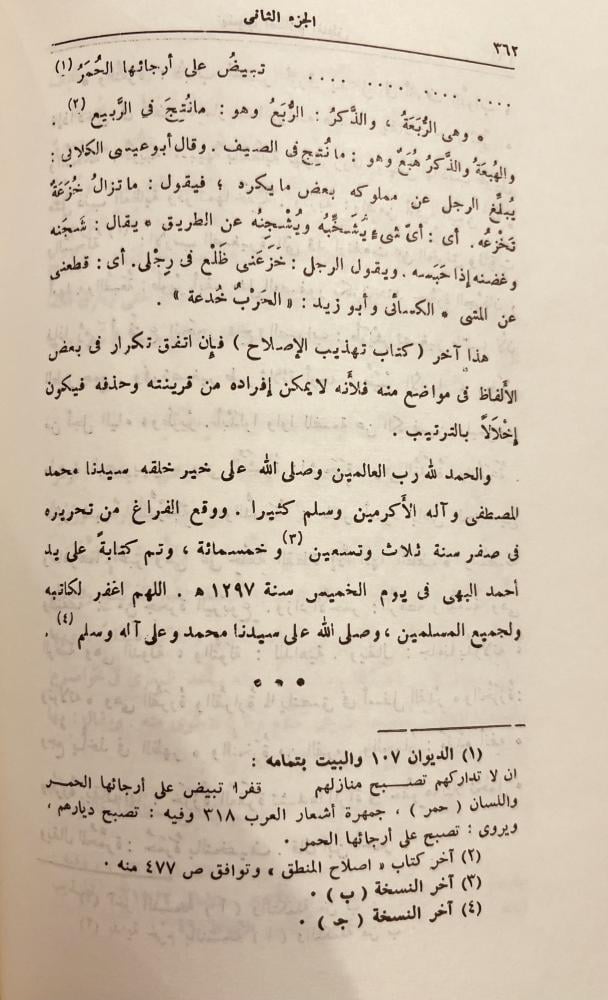 الجزء الثانى
٣٦٢
.... .... .... .... تبيضُ على أرجائها الحُمَرُ (١)
* وهى الرُّبَعَةُ ، والذَّكرُ : الرُّبَعُ وهو : مانُتِجَ فى الرَّبيع (٢) .
والهُبعَةُ والذَّكرُ هُبَعٌ وهو : ما نُتِج فى الصيف . وقال أبو عيسى الكلابى :
يُبلِّغ الرجل عن مملوكه بعض ما يكره ؛ فيقول : ما تزالُ خُزَعَةٌ
تَخْزعُه . أى : أىّ شىءٍ يُشَخِّبُه ويُشْجِنُه عن الطريق * يقال : شَجَنه
وغضنه إذا حَبَسه . ويقول الرجل : خَزَعَنى ظَلْع فى رِجْلى. أى : قطعنى
عن المشى * الكسائى وأبو زيد : « الحَرْبُ خُدعة » .
هذا آخر ( كتاب تهذيب الإصلاح ) فإن اتفق تكرار فى بعض
الأَلفاظ فى مواضع منه فلأَنه لا يمكن إفراده من قرينته وحذفه فيكون
إخْلَالاً بالترتيب .
والحمد لله رب العالمين وصلى الله على خير خلقه سيدنا محمد
المصطفى وآله الأَكرمين وسلم كثيرا . ووقع الفراغ من تحريره
فى صفر سنة ثلاث وتسعين (٣) و خمسمائة ، وتم كتابةً على يد
أحمد البهى فى يوم الخميس سنة ١٢٩٧ ه . اللهم اغفر لكاتبه
ولجميع المسلمين ، وصلى الله على سيدنا محمد وعلى آله وسلم (٤) .
* * *
(١) الديوان ١٠٧ والبيت بتمامه :
ان لا تداركهم تصبح منازلهم قفرا تبيض على أرجائها الحمر
واللسان ( حمر ) ، جمهرة أشعار العرب ٣١٨ وفيه : تصبح ديارهم ،
ويروى : تصبح على أرجائها الحمر .
(٢) آخر كتاب « اصلاح المنطق » وتوافق ص ٤٧٧ منه .
(٣) آخر النسخة ( ب ) .
(٤) آخر النسخة ( ج ) .